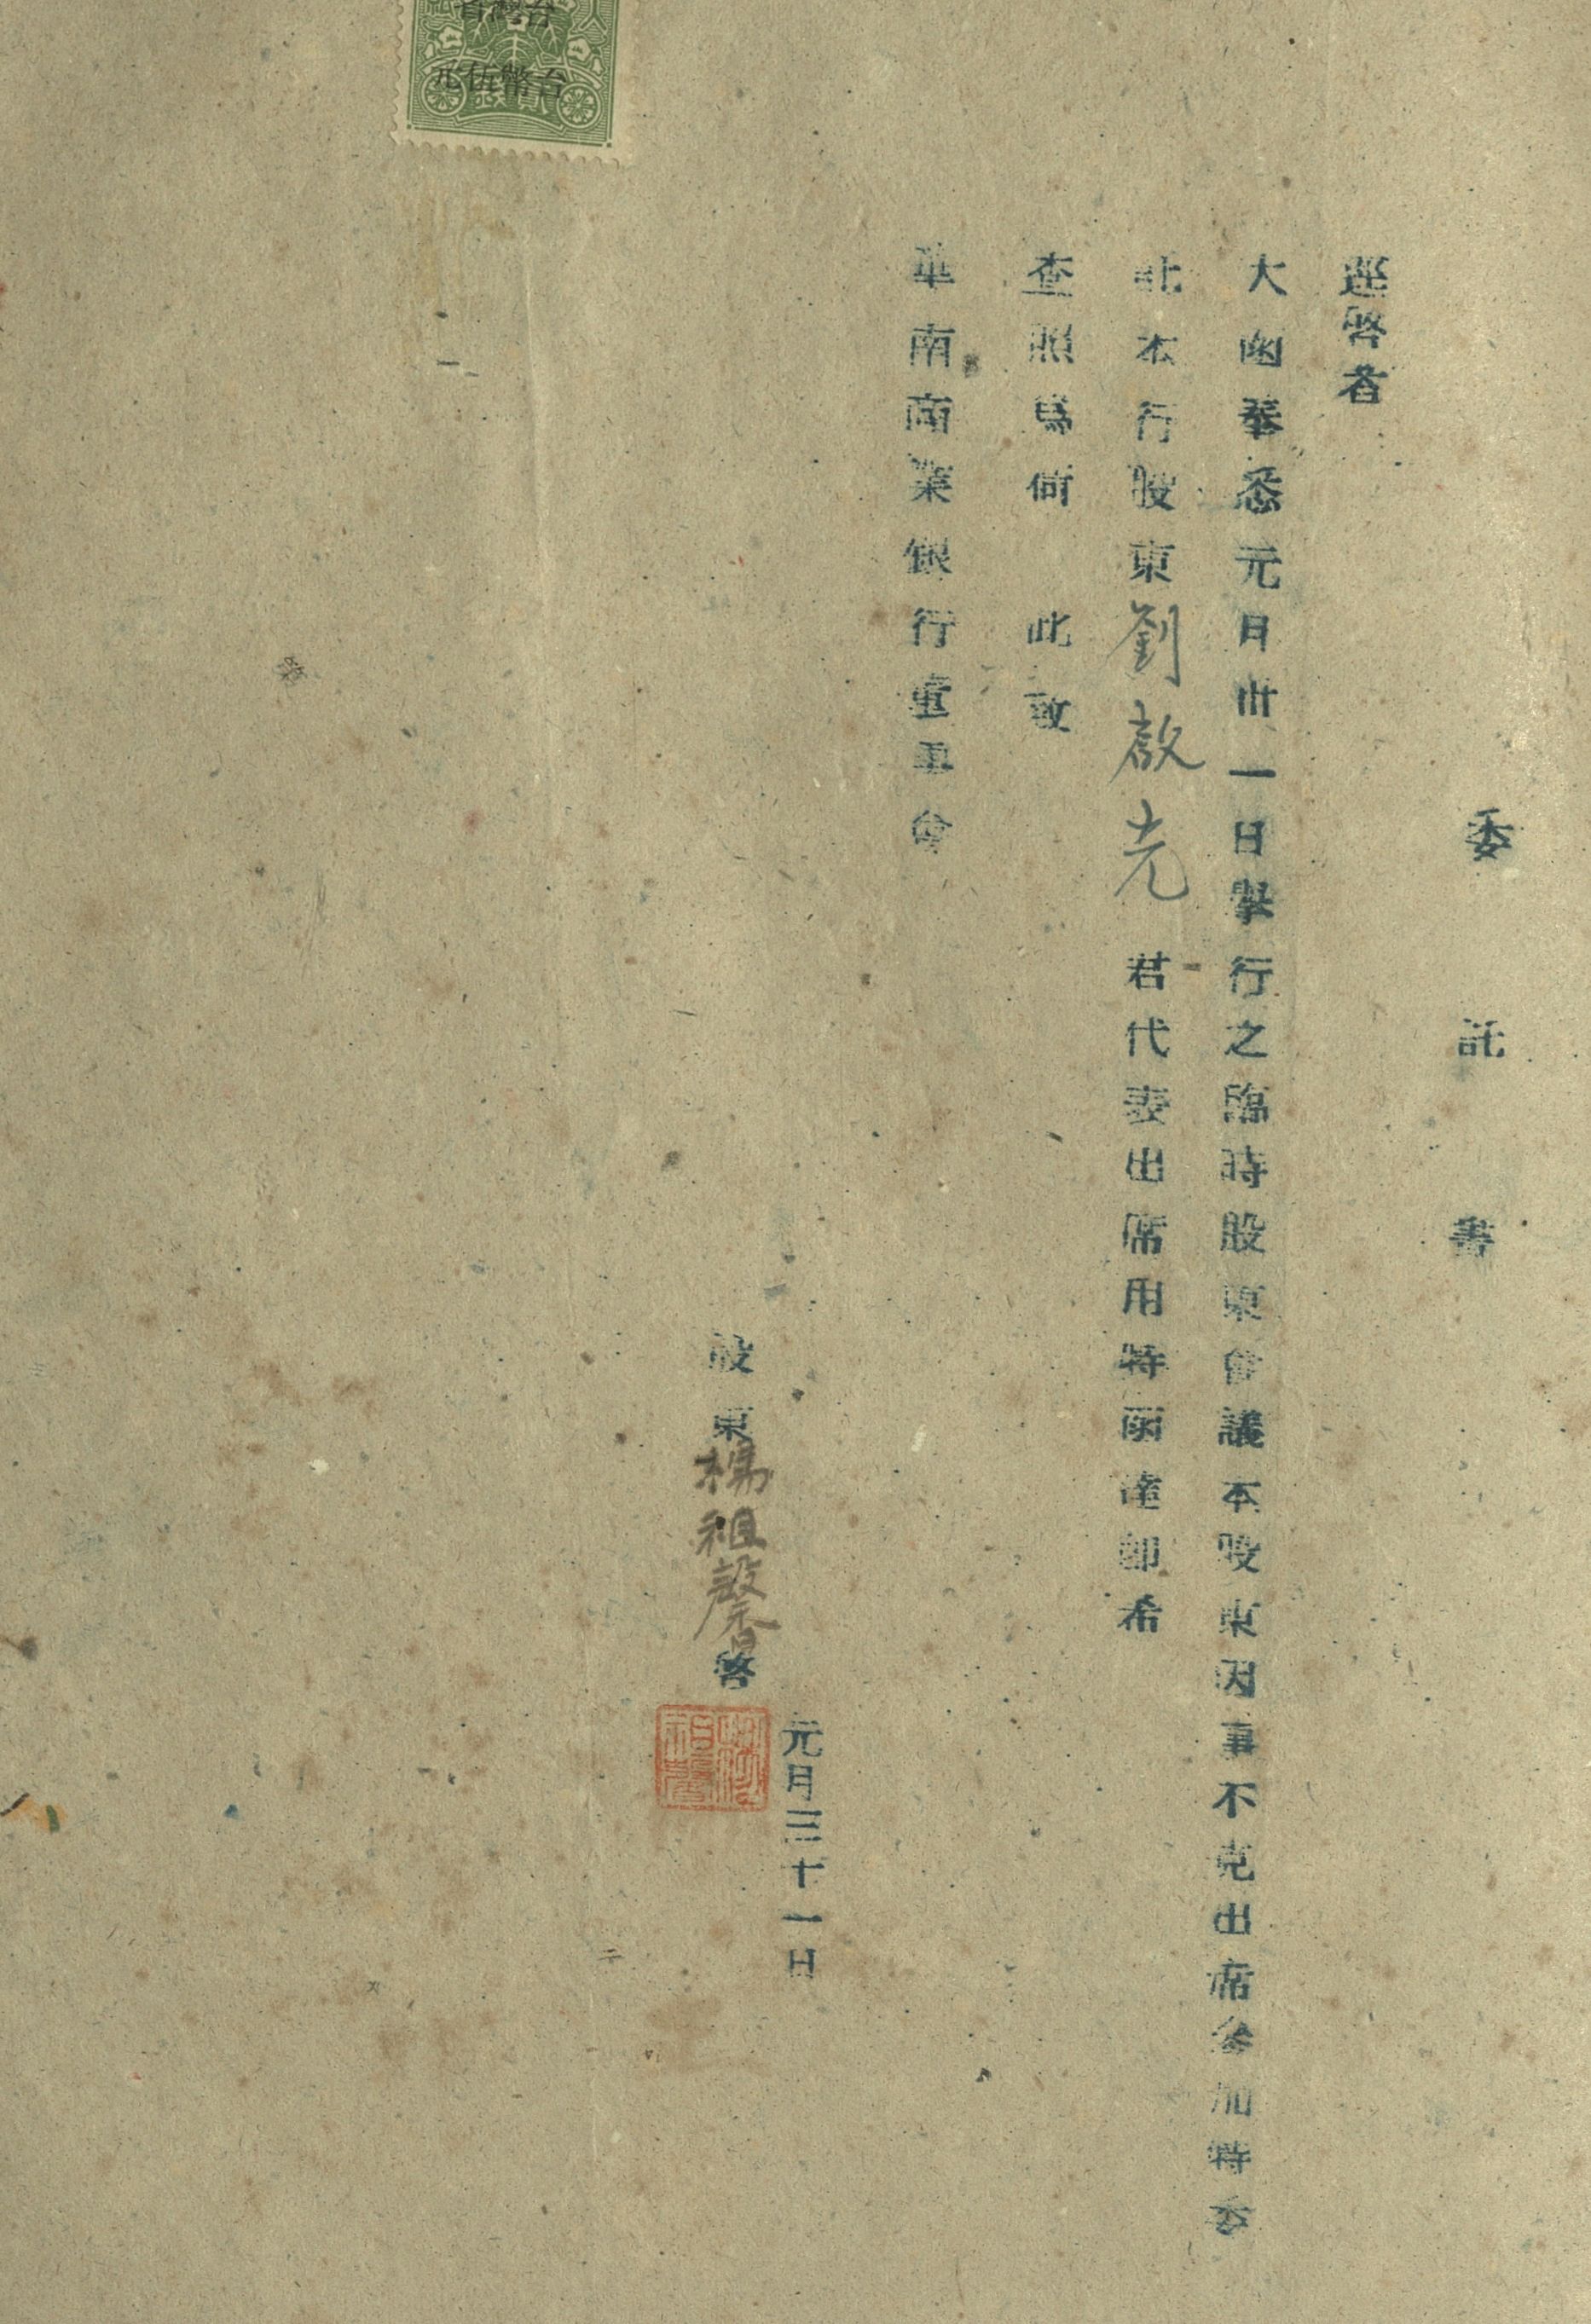 委託書
逕啓者
大函奉悉元月卅一日舉行之臨時股東會議本股東因事不克出席參加特委
託本行股東劉啟光 君代表出席用特函達卽希
查照爲荷 此致
華南商業銀行董事會
元月三十一日
股東楊祖馨啓
楊祖馨
台灣省
台幣伍元